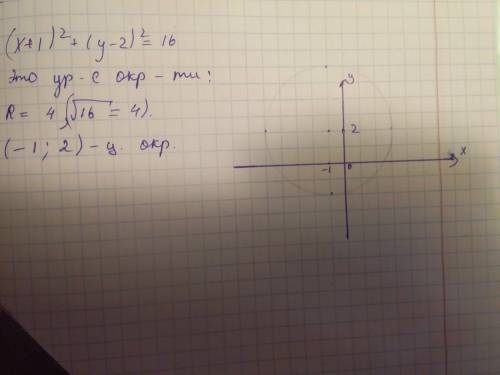 (x+1)² + (y-2)² = 16
Это ур-е окр-ти:
R = 4 (√16 = 4).
(-1; 2) - ц. окр.
y
2
x
-1 0